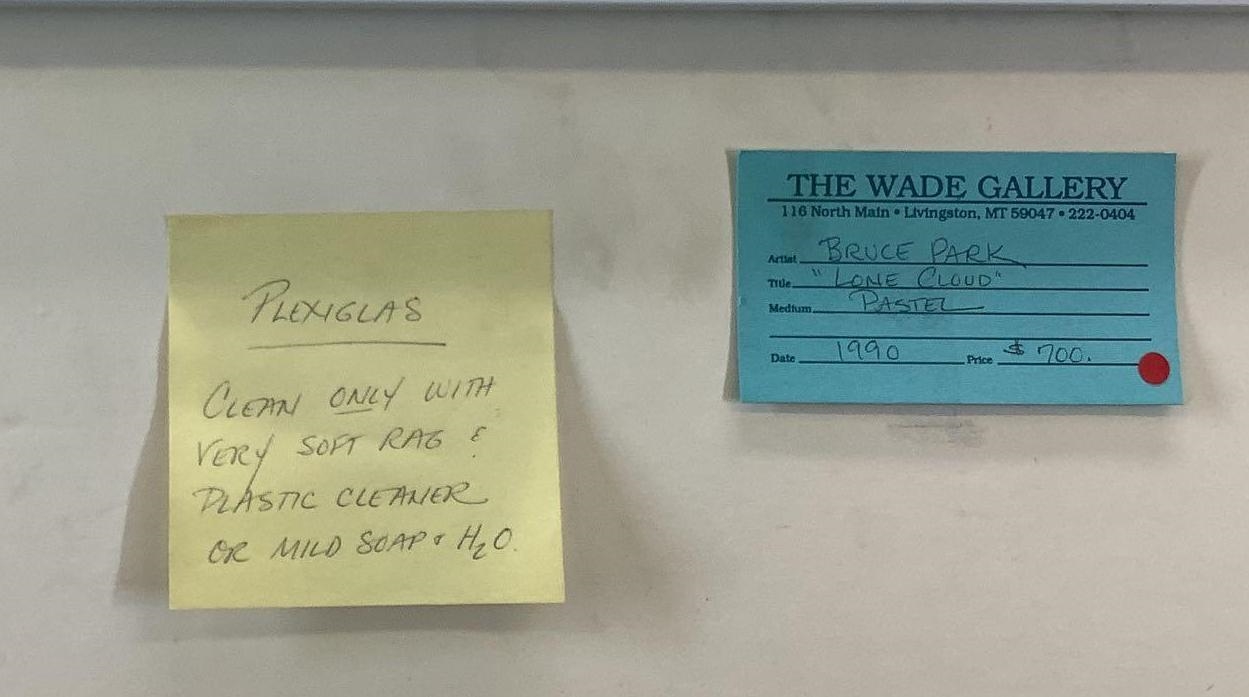 PLEXIGLAS
CLEAN ONLY WITH
VERY SOFT RAG &
PLASTIC CLEANER
OR MILD SOAP & H₂O.
THE WADE GALLERY
116 North Main • Livingston, MT 59047 • 222-0404
Artist BRUCE PARK
Title "LONE CLOUD"
Medium PASTEL
Date 1990 Price $ 700.